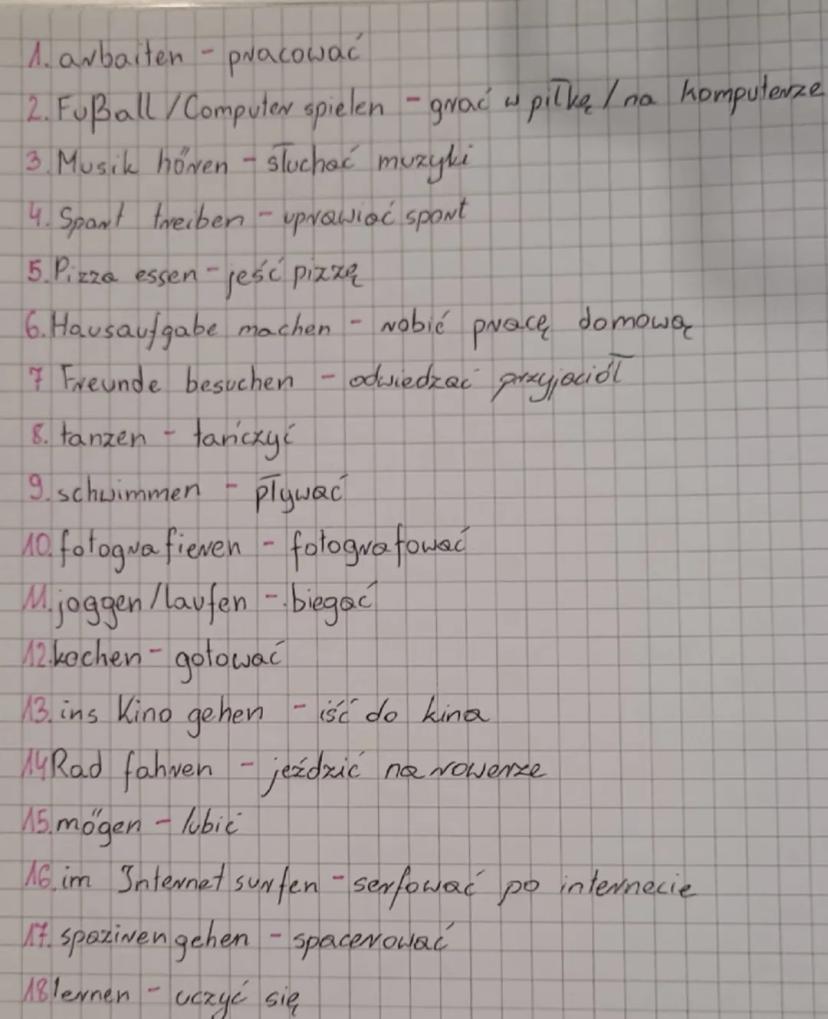 1. arbaiten - pracować
2. Fußball / Computer spielen - grać w piłkę / na komputerze
3. Musik hören - słuchać muzyki
4. Sport treiben - uprawiać sport
5. Pizza essen - jeść pizzę
6. Hausaufgabe machen - robić pracę domową
7 Freunde besuchen - odwiedzać przyjaciół
8. tanzen - tańczyć
9. schwimmen - pływać
10. fotografieren - fotografować
11. joggen / laufen - biegać
12. kochen - gotować
13. ins Kino gehen - iść do kina
14 Rad fahren - jeździć na rowerze
15. mögen - lubić
16. im Internet surfen - serfować po internecie
17. spaziren gehen - spacerować
18 lernen - uczyć się